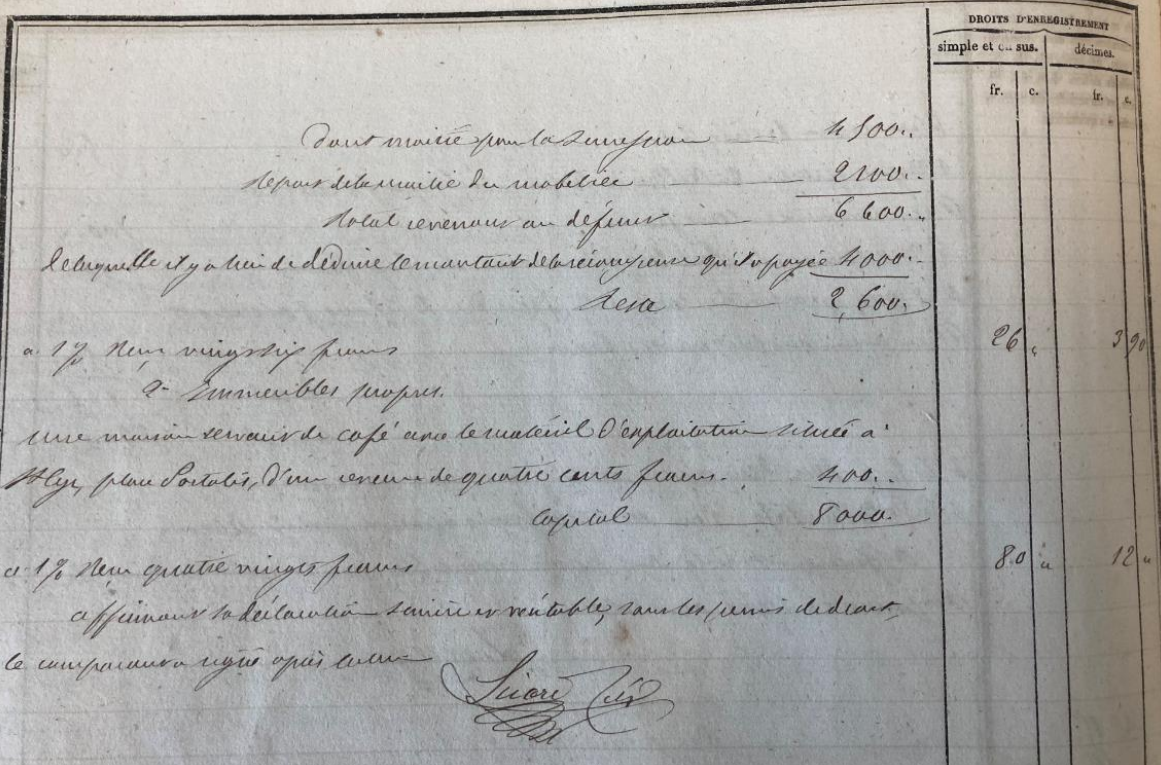 DROITS D'ENREGISTREMENT
simple et en sus. décimes.
fr. c. fr. c.
Dont moitié pour la succession 4500..
report de la moitié du mobilier 2100..
total revenant au défunt 6600..
de laquelle il y a lieu de déduire le montant de la récompense qu'il a payée 4000..
Reste 2,600.
a 1% Reçu vingt six francs 26 " 3 90
2° Immeubles propres.
une maison servant de café avec le matériel d'exploitation située à
St Cyr, place Portalis, d'un revenu de quatre cents francs. 400..
Capital 8000.
a 1% Reçu quatre vingts francs 80 " 12 "
affirmant sa déclaration sincère et véritable, sous les peines de droit,
le comparant a signé après lecture